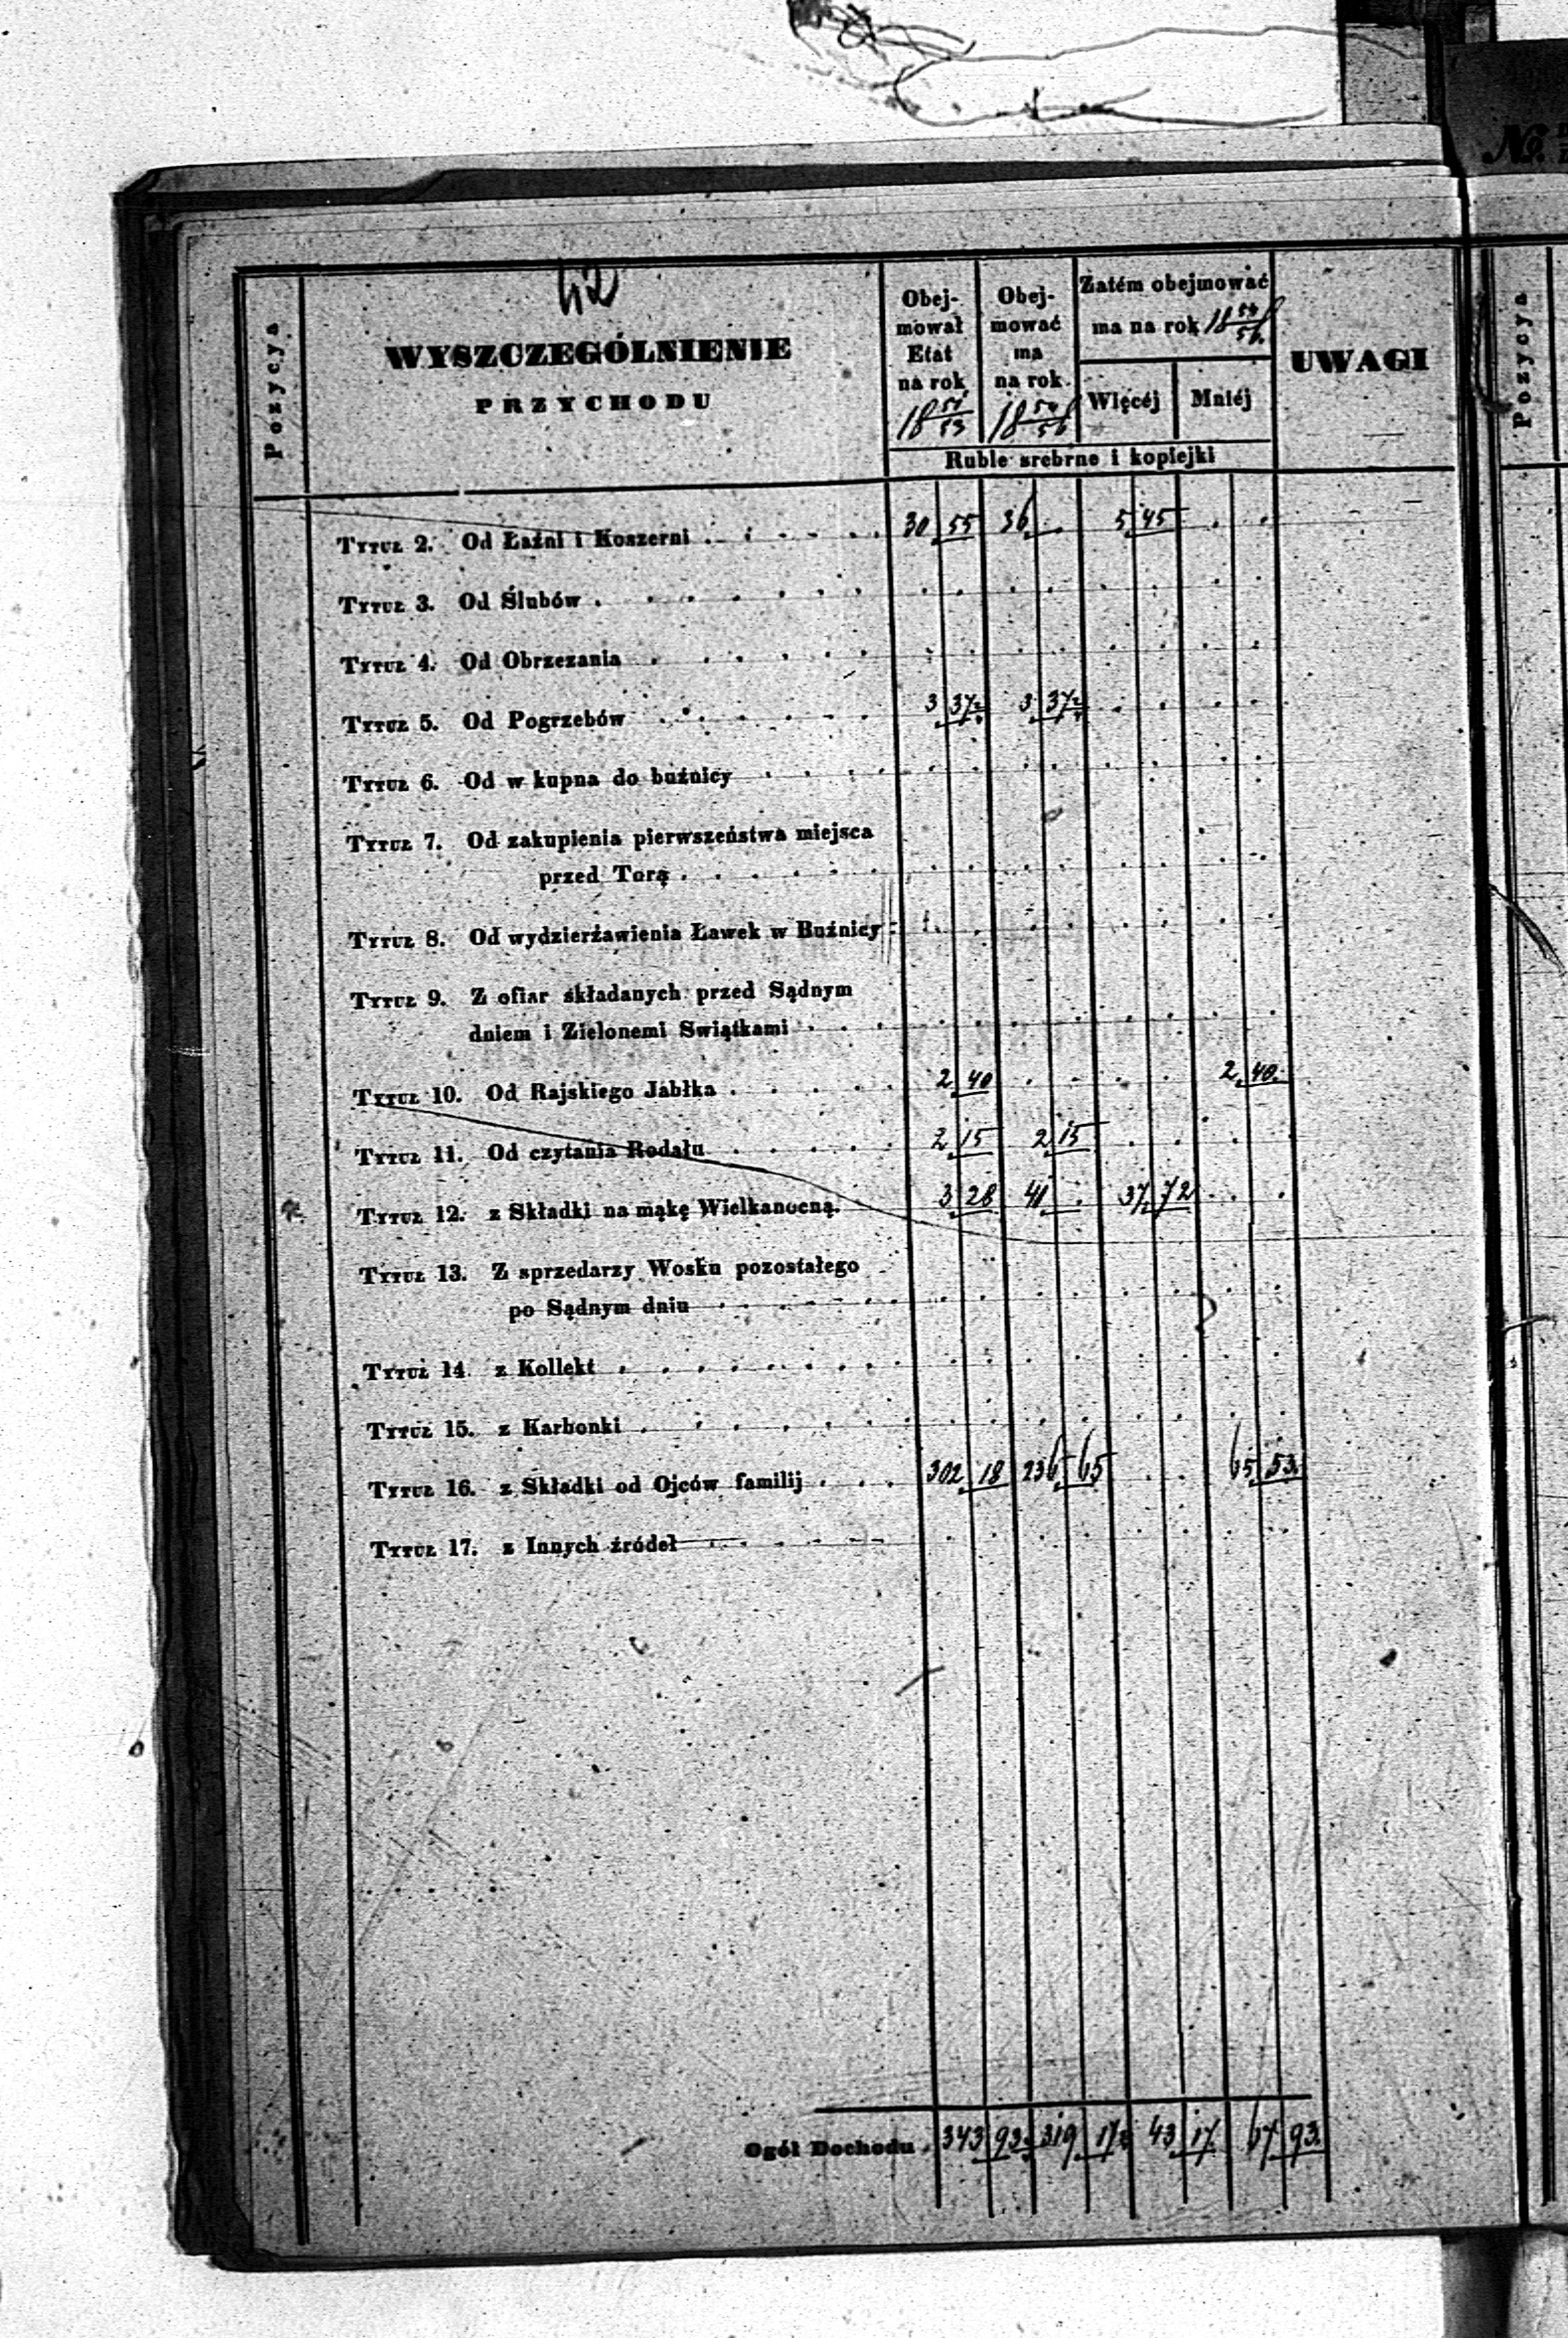 42
Pozycya
WYSZCZEGÓLNIENIE
PRZYCHODU
Obej-
mował
Etat
na rok
18 51/53
Obej-
mować
ma
na rok
18 54/56
Zatém obejmować
ma na rok 18 54/56
Więcéj
Mniéj
UWAGI
Ruble srebrne i kopiejki
Tytuł 2. Od Łaźni i Koszerni 30 55 36 . 5 45 . .
Tytuł 3. Od Ślubów
Tytuł 4. Od Obrzezania
Tytuł 5. Od Pogrzebów 3 37½ 3 37½ . . . .
Tytuł 6. Od w kupna do buźnicy
Tytuł 7. Od zakupienia pierwszeństwa miejsca
przed Torą
Tytuł 8. Od wydzierżawienia Ławek w Buźnicy
Tytuł 9. Z ofiar składanych przed Sądnym
dniem i Zielonemi Swiątkami
Tytuł 10. Od Rajskiego Jabłka 2 40 . . . . 2 40
Tytuł 11. Od czytania Rodału 2 15 2 15 . . . .
Tytuł 12. z Składki na mąkę Wielkanocną. 3 28 41 . 37 72 . .
Tytuł 13. Z sprzedarzy Wosku pozostałego
po Sądnym dniu
Tytuł 14. z Kollekt
Tytuł 15. z Karbonki
Tytuł 16. z Składki od Ojców familij 302 18 236 65 . . 65 53
Tytuł 17. z Innych źródeł
Ogół Dochodu 343 93½ 319 17½ 43 17 67 93
No.
Pozycya